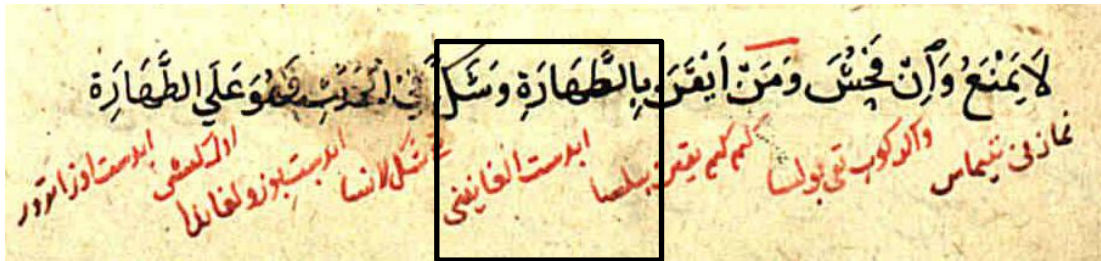 لَا يَمْنَعُ وَاِنْ فَحُشَ وَمَنْ اَيْقَنَ بِالطَّهَارَةِ وَشَكَّ فِي الْحَدَثِ فَهُوَ عَلَي الطَّهَارَةِ
نمازنی تییماس واکر کوب تقی بولسا کیم کیم یقین بیلسا ابدست الغانینی شکلانسا ابدست بوزولغاندا اول کیشی ابدست اوزا تورور